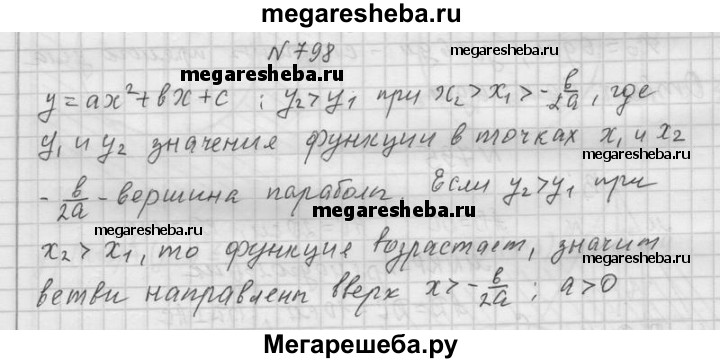 megaresheba.ru
N 798
megaresheba.ru
megaresheba.ru
y = ax² + вx + c ; y₂ > y₁ при x₂ > x₁ > -в/2a, где
y₁ и y₂ значения функции в точках x₁ и x₂
megaresheba.ru
-в/2a - вершина параболы. Если y₂ > y₁ при
megaresheba.ru
x₂ > x₁, то функция возрастает, значит
megaresheba.ru
ветви направлены вверх x > -в/2a ; a > 0
Мегарешеба.ру